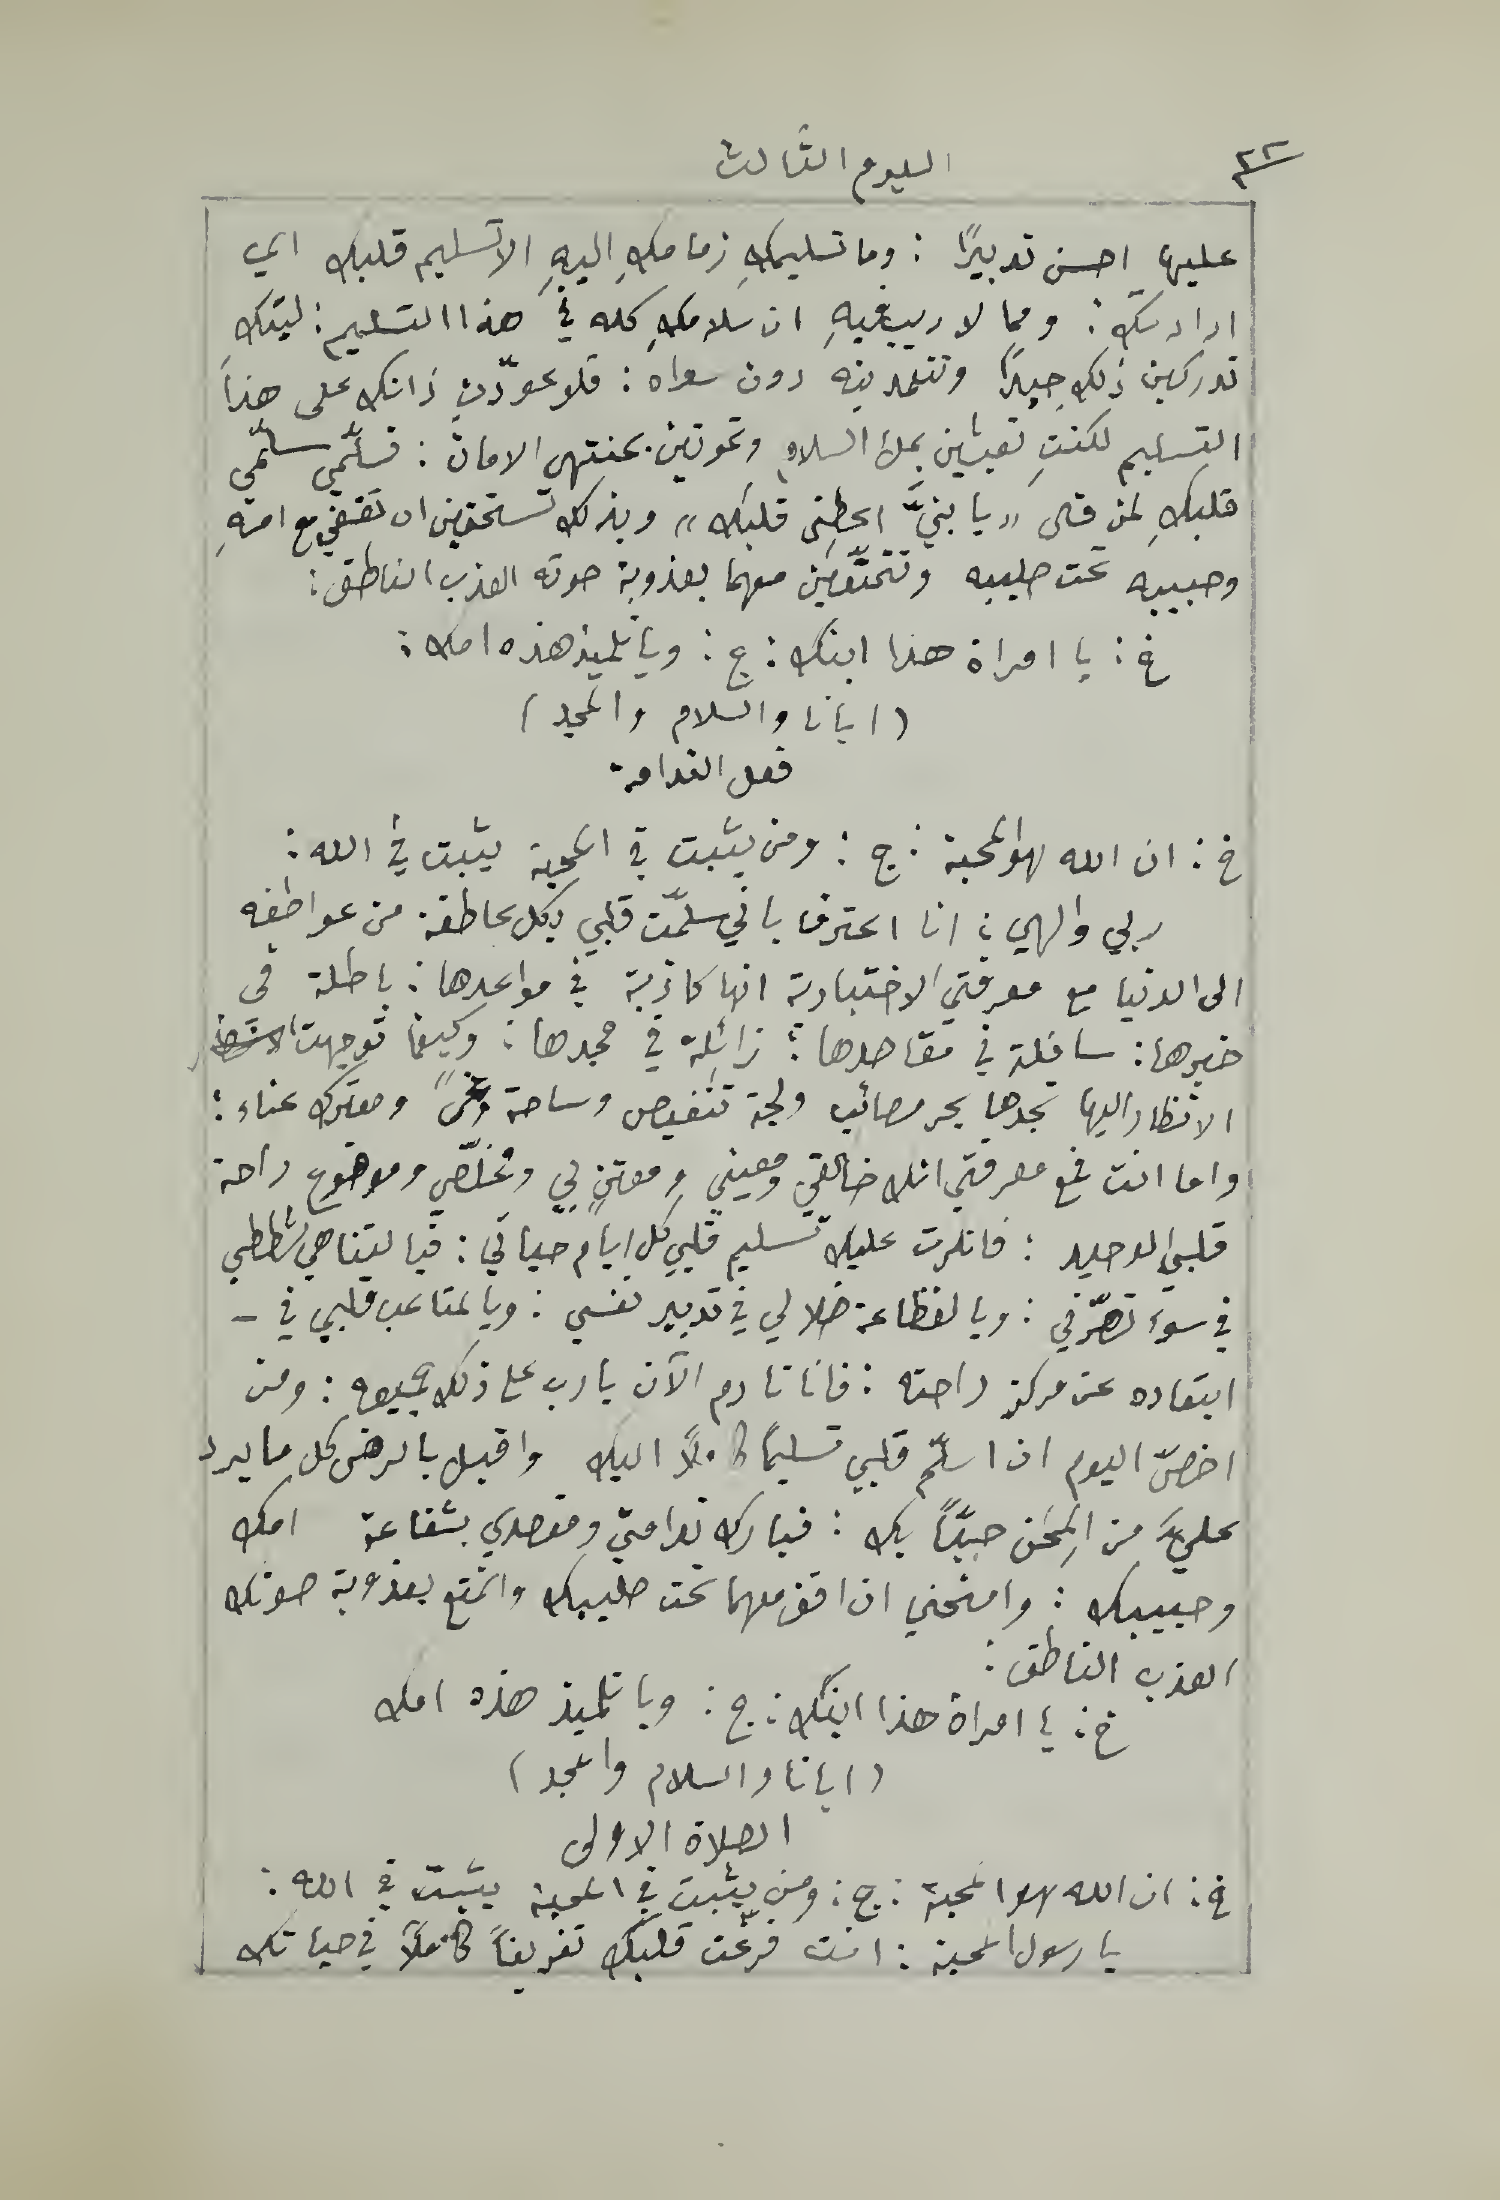 ٣٢ اليوم الثالث
عليها احسن تدبيرًا : وما تسليمكِ زمامكِ اليهِ الا تسليم قلبك الى
ارادتك : ومما لا ريب فيهِ ان سلامكِ كله في هذا التسليم : ليتكِ
تدركين ذلك جيدًا وتتعمدينه دون سواه : فلو عوّدتِ ذاتك على هذا
التسليم لكنتِ تعيشين بملء السلام وتموتين بمنتهى الامان : فسلّمي سلّمي
قلبكِ لمن قال « يا بنيَّ اعطني قلبك » وبذلك تستحقين ان تقفي مع امهِ
وحبيبه تحت صليبه وتتمتّعين معهما بعذوبة صوته العذب الناطق :
خ : يا امراة هذا ابنك : ج : ويا تلميذ هذه امك :
( ابانا والسلام والمجد )
فعل الندامة
خ : ان الله هو المحبة : ج : ومن يثبت في المحبة يثبت في الله :
ربي والهي : انا اعترف باني سلّمت قلبي بكل عاطفة من عواطفه
الى الدنيا مع معرفتي الاختبارية انها كاذبة في مواعدها : باطلة في
خيرها : سافلة في مقاصدها : زائلة في مجدها : وكيفما توجهت
الانظار اليها تجدها بحر مصائب ولجة تنغيص وساحة وغىً ومعترك عناء :
واما انت فمع معرفتي انك خالقي ومعيني ومعتنٍ بي ومخلّصي وموضوع راحة
قلبي الوحيد : فانكرت عليك تسليم قلبي كل ايام حياتي : فيا لتناهي شططي
في سوء تصرّفي : ويا لفظاعة ضلالي في تدبير نفسي : ويا لمتاعب قلبي في -
ابتعاده عن مركز راحته : فانا نادم الآن يا رب على ذلك جميعه : ومن
اخصّ اليوم ان اسلّم قلبي تسليمًا كاملًا اليك واقبل بالرضى كل ما يرد
عليَّ من المِحَن حبًّا بك : فبارك ندامتي ومقصدي بشفاعة امك
وحبيبك : وامنحني ان اقف معهما تحت صليبك واتمتع بعذوبة صوتك
العذب الناطق :
خ : يا امراة هذا ابنك : ج : ويا تلميذ هذه امك
( ابانا والسلام والمجد )
الصلاة الاولى
خ : ان الله هو المحبة : ج : ومن يثبت في المحبة يثبت في الله :
يا رسول المحبة : انت فرّغت قلبك تفريغاً كاملًا في حياتك